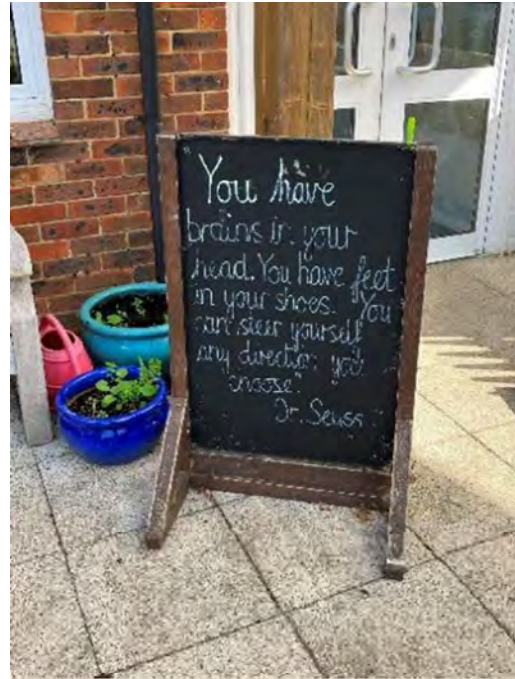 You have
brains in your
head. You have feet
in your shoes. You
can steer yourself
any direction you
choose"
Dr. Seuss